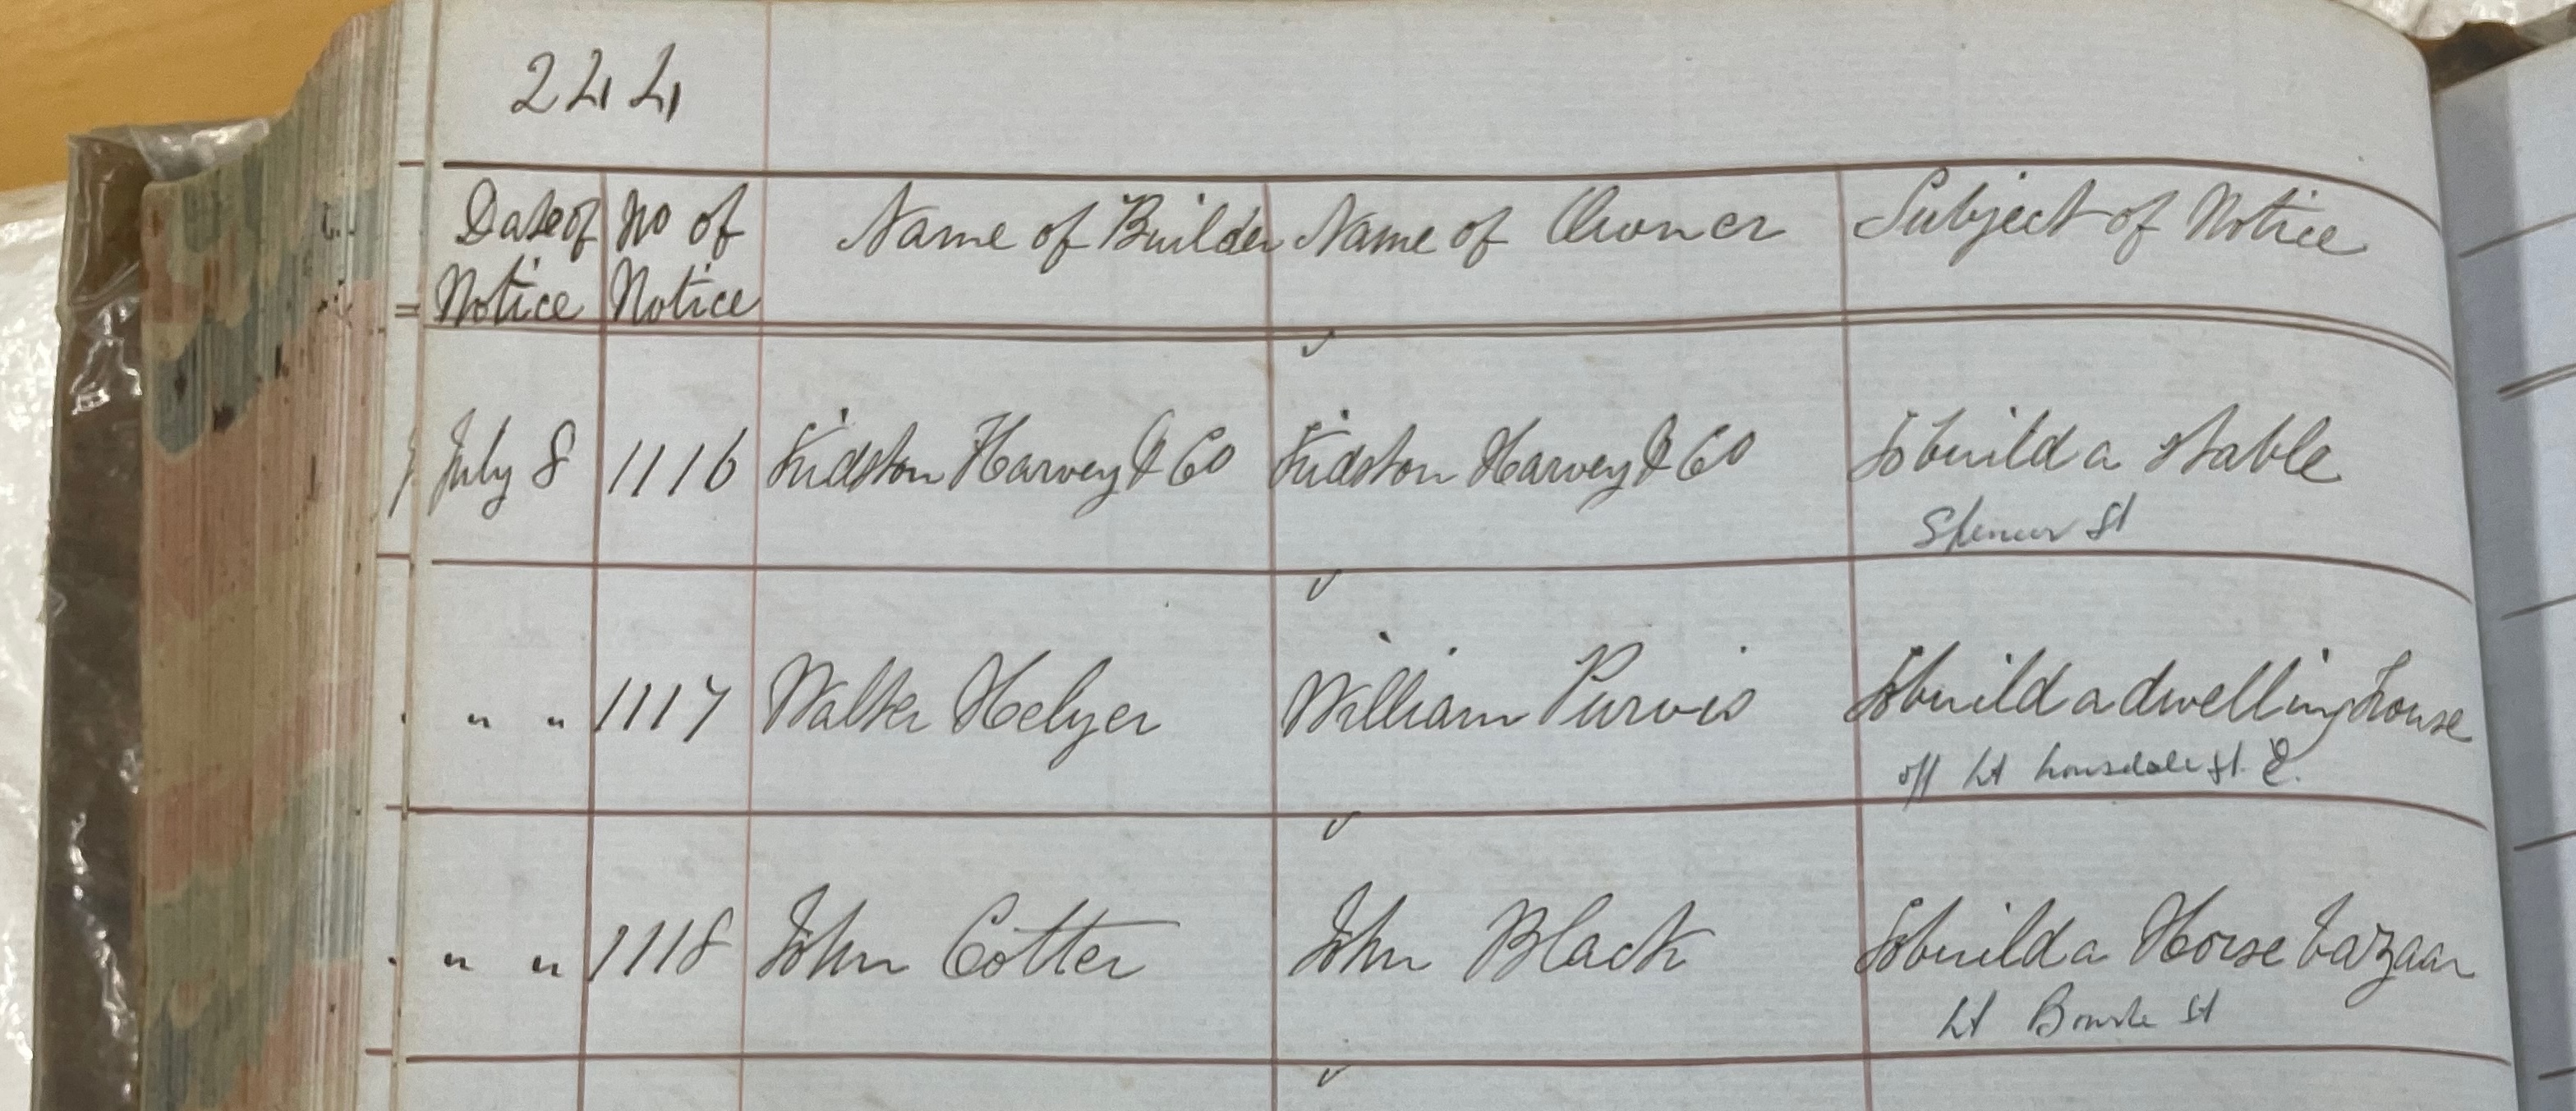 244
Date of Notice No of Notice Name of Builder Name of Owner Subject of Notice
July 8 1116 Kidston Harvey & Co Kidston Harvey & Co To build a stable
Spencer St
" " 1117 Walter Helyer William Purvis To build a dwelling house
off Lt Lonsdale St. E.
" " 1118 John Cotter John Black To build a Horse bazaar
Lt Bourke St